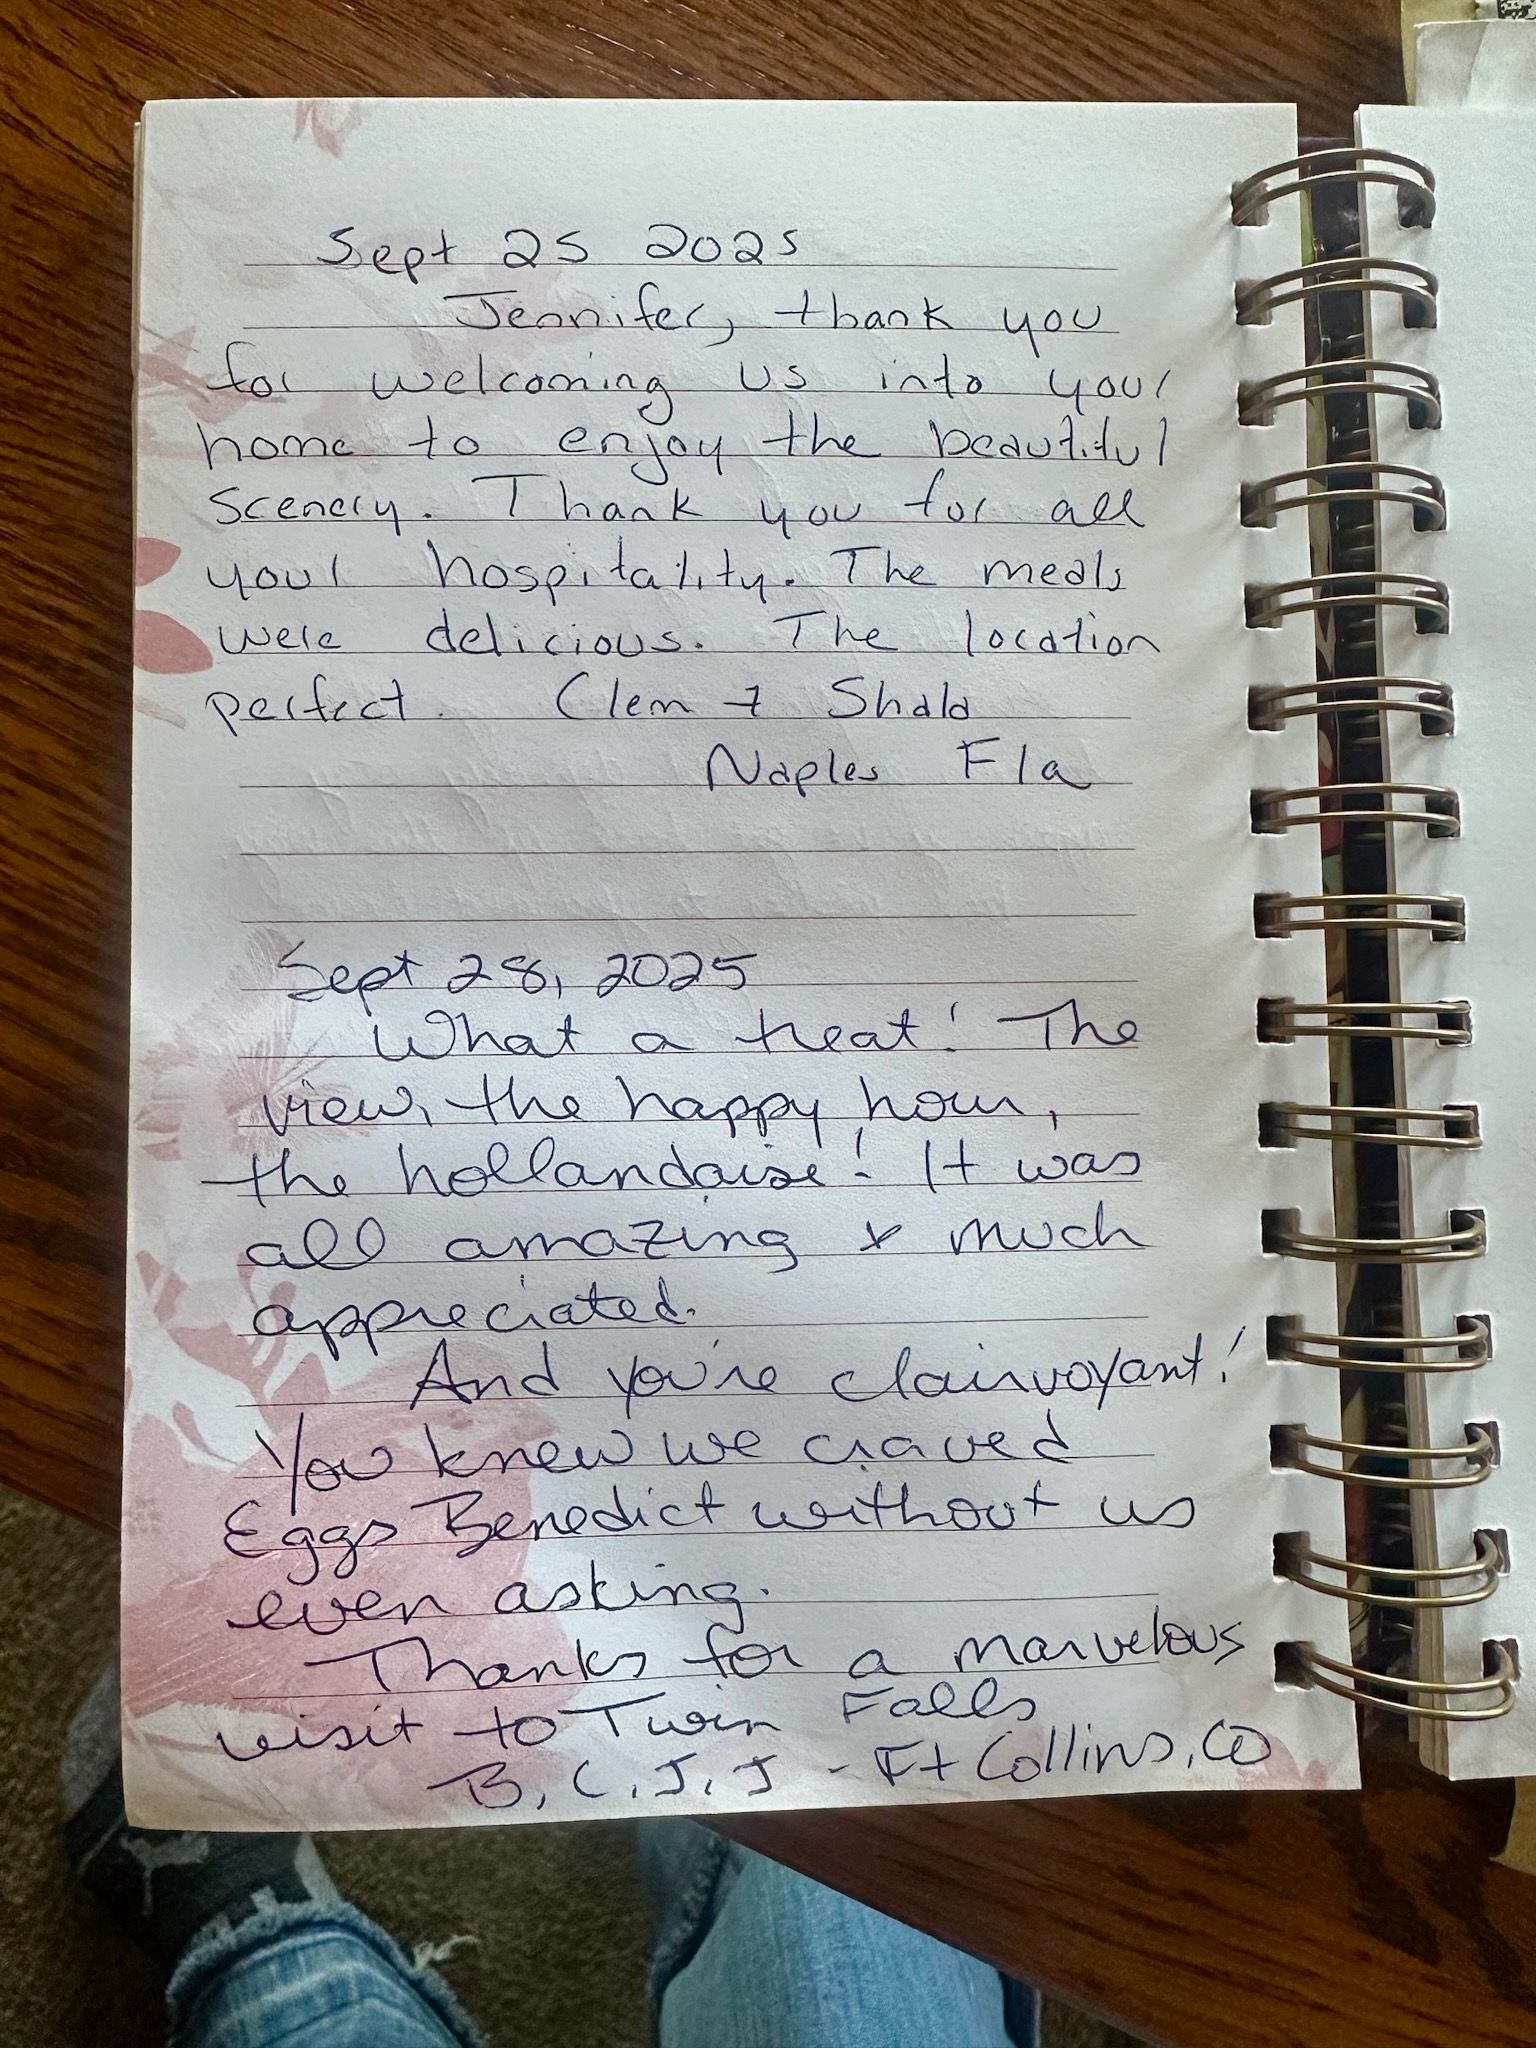 Sept 25 2025
Jennifer, thank you
for welcoming us into your
home to enjoy the beautiful
scenery. Thank you for all
your hospitality. The meals
were delicious. The location
perfect. Clem +
Naples Fla
Sept 28, 2025
What a treat! The
view, the happy hour,
the hollandaise! It was
all amazing & much
appreciated.
And you're clairvoyant!
You knew we craved
Eggs Benedict without us
even asking.
Thanks for a marvelous
visit to Twin Falls
B, C, J, J - Ft Collins, CO